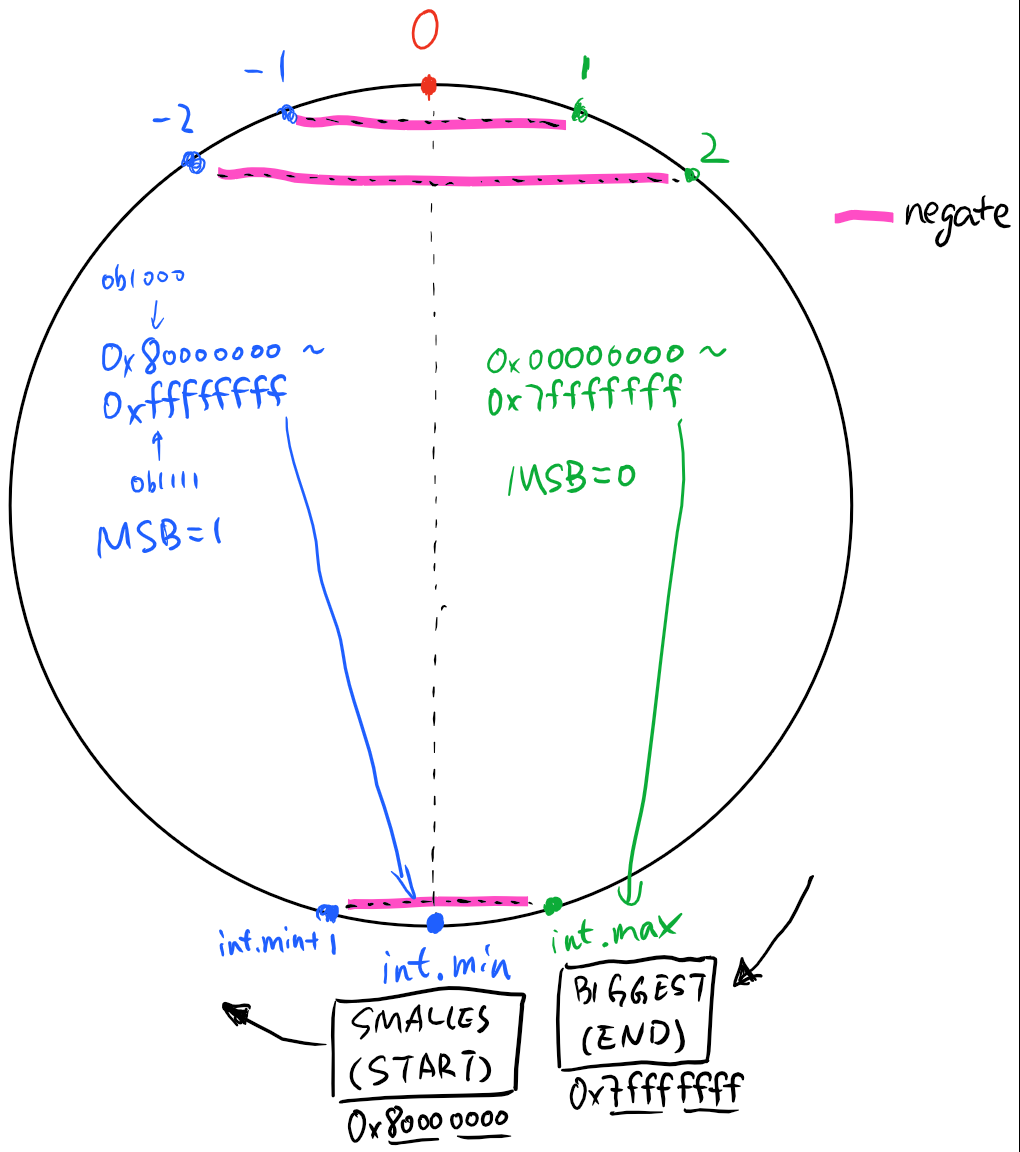 0
-1
1
-2
2
negate
0b1000
↓
0x80000000 ~
0xffffffff
↑
0b1111
MSB=1
0x00000000 ~
0x7fffffff
MSB=0
int.min+1
int.min
int.max
SMALLES
(START)
0x8000 0000
BIGGEST
(END)
0x7fff ffff